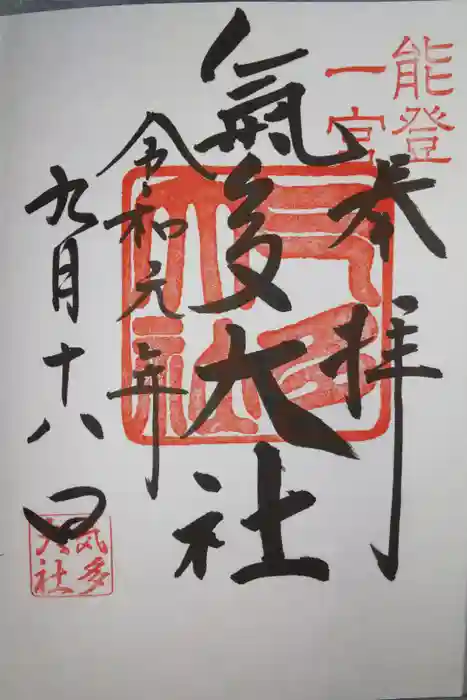 能登
一宮
奉拝
氣多大社
令和元年
九月十八日
気多
大社
気多
大社